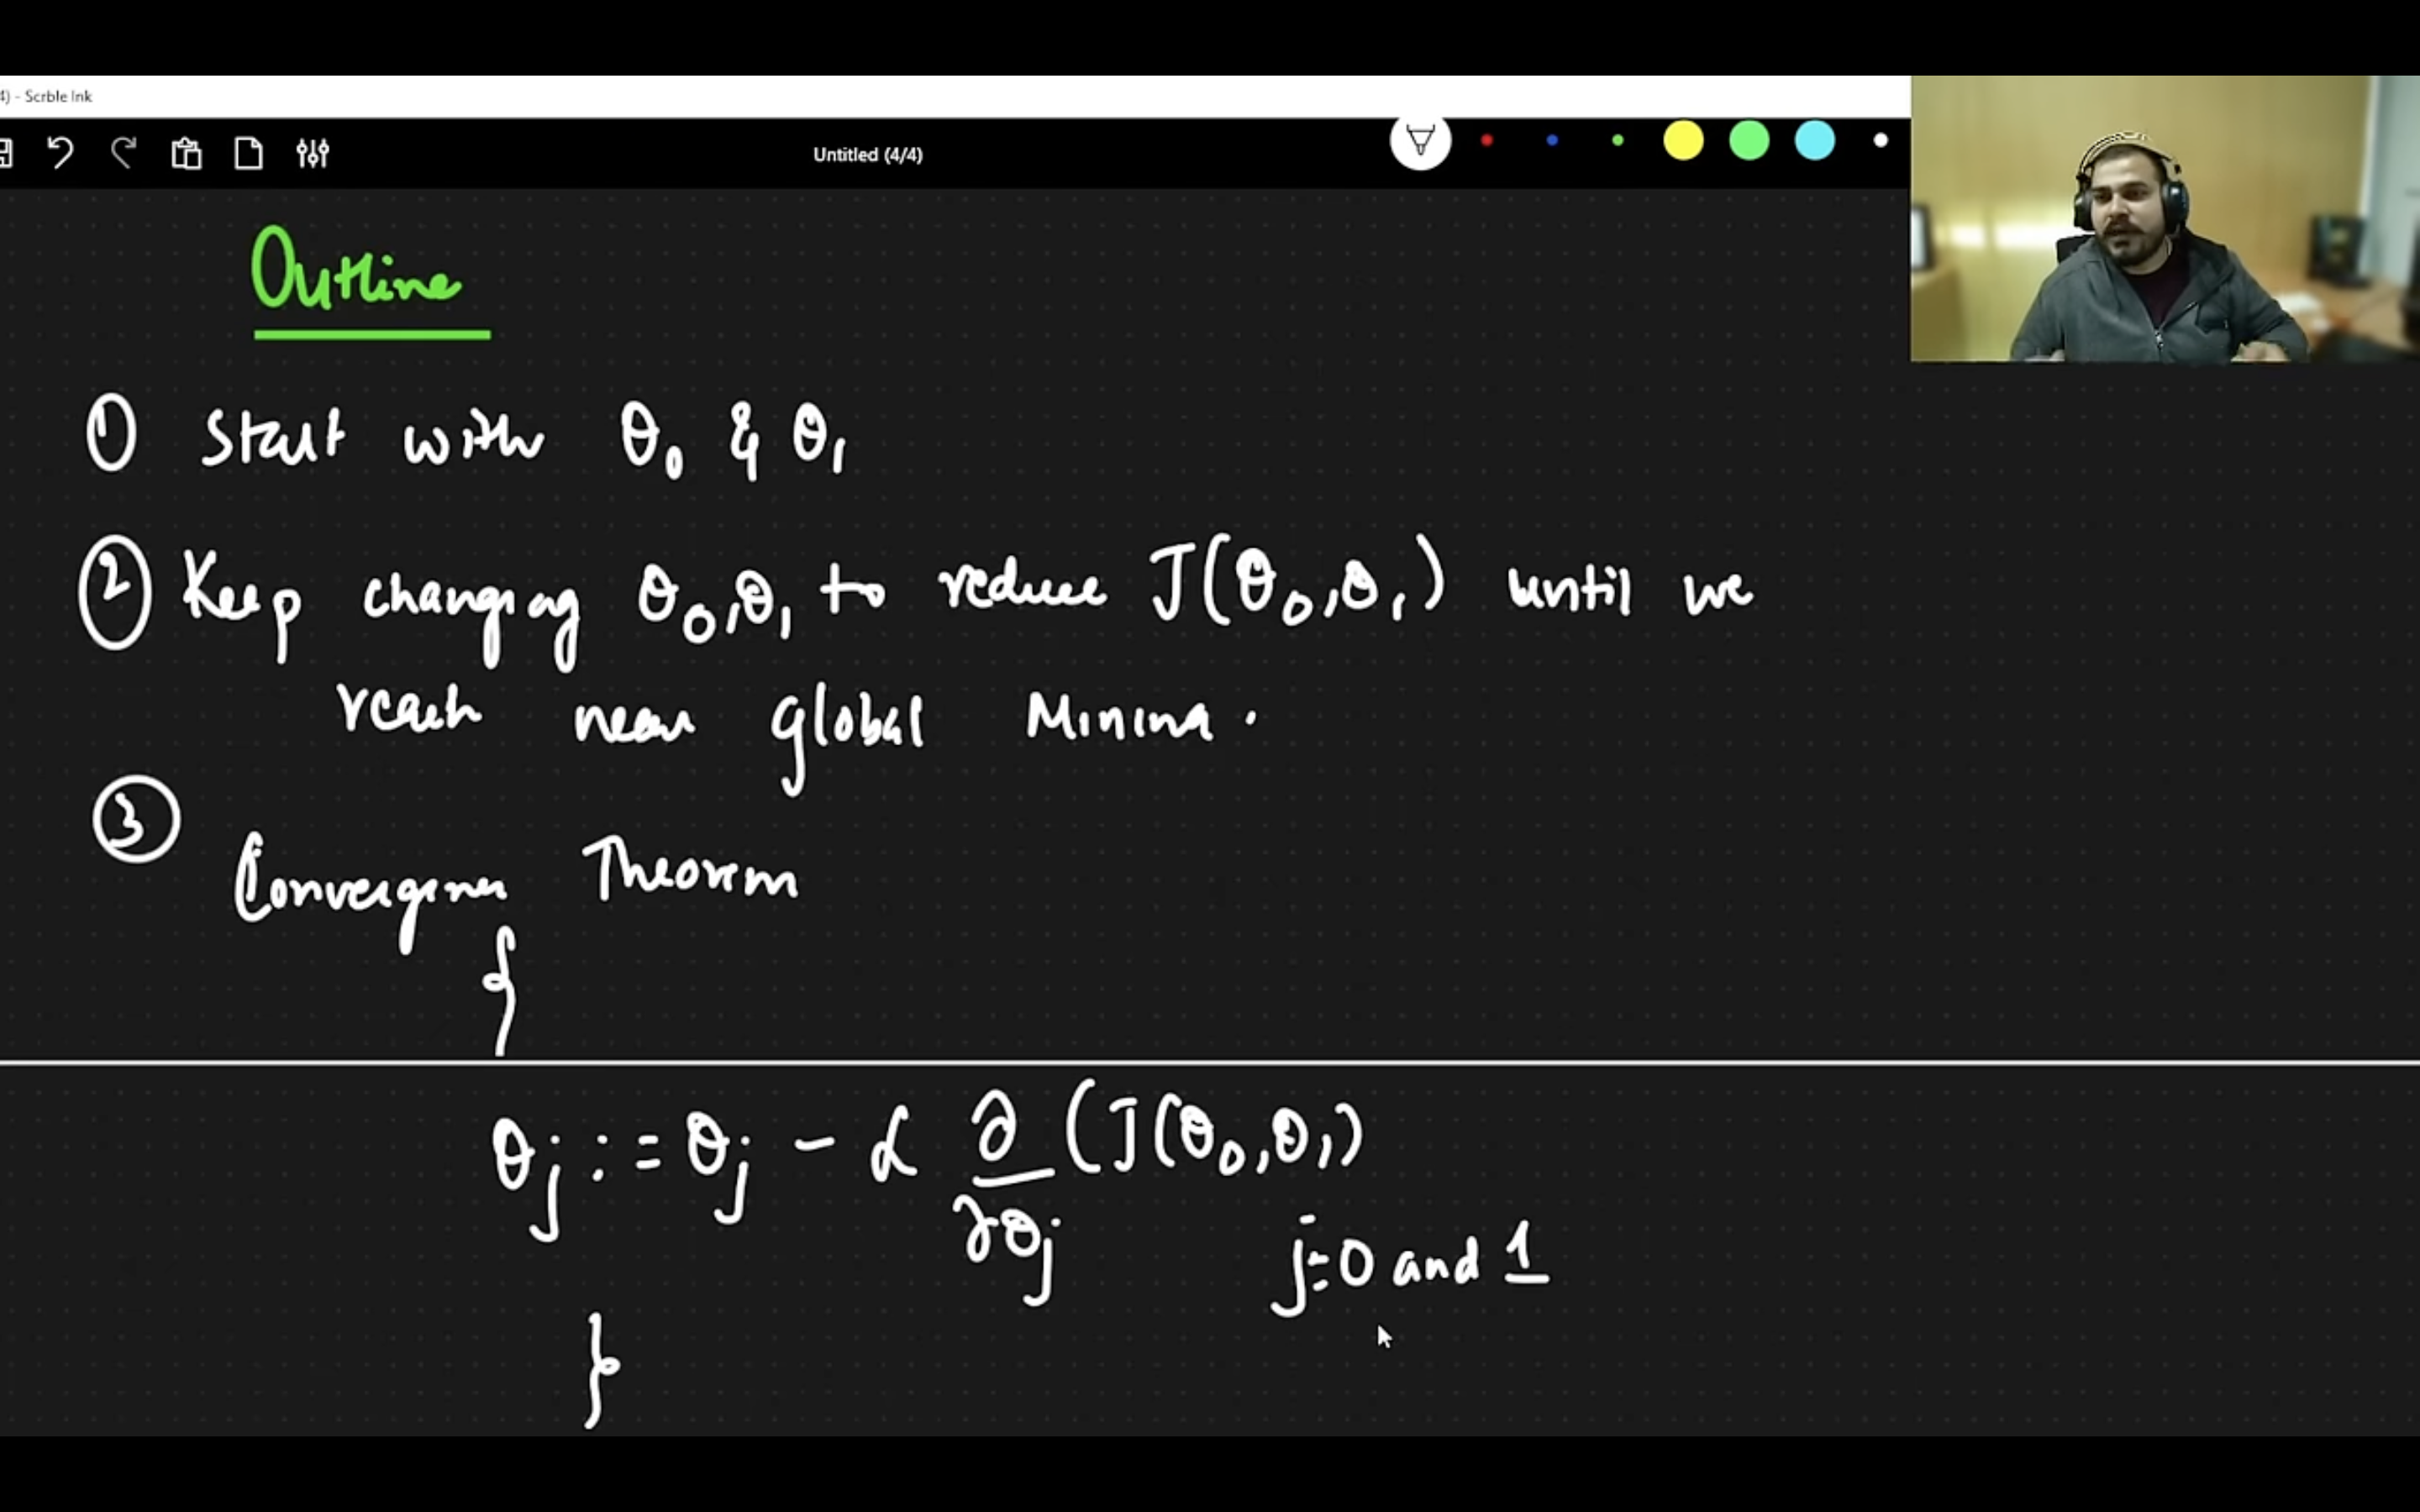 4) - Scrble Ink
Untitled (4/4)
Outline
① Start with θ₀ & θ₁
② Keep changing θ₀,θ₁ to reduce J(θ₀,θ₁) until we
reach near global Minima.
③
Convergence Theorem
{
θj := θj - α ∂/∂θj (J(θ₀,θ₁)
j=0 and 1
}